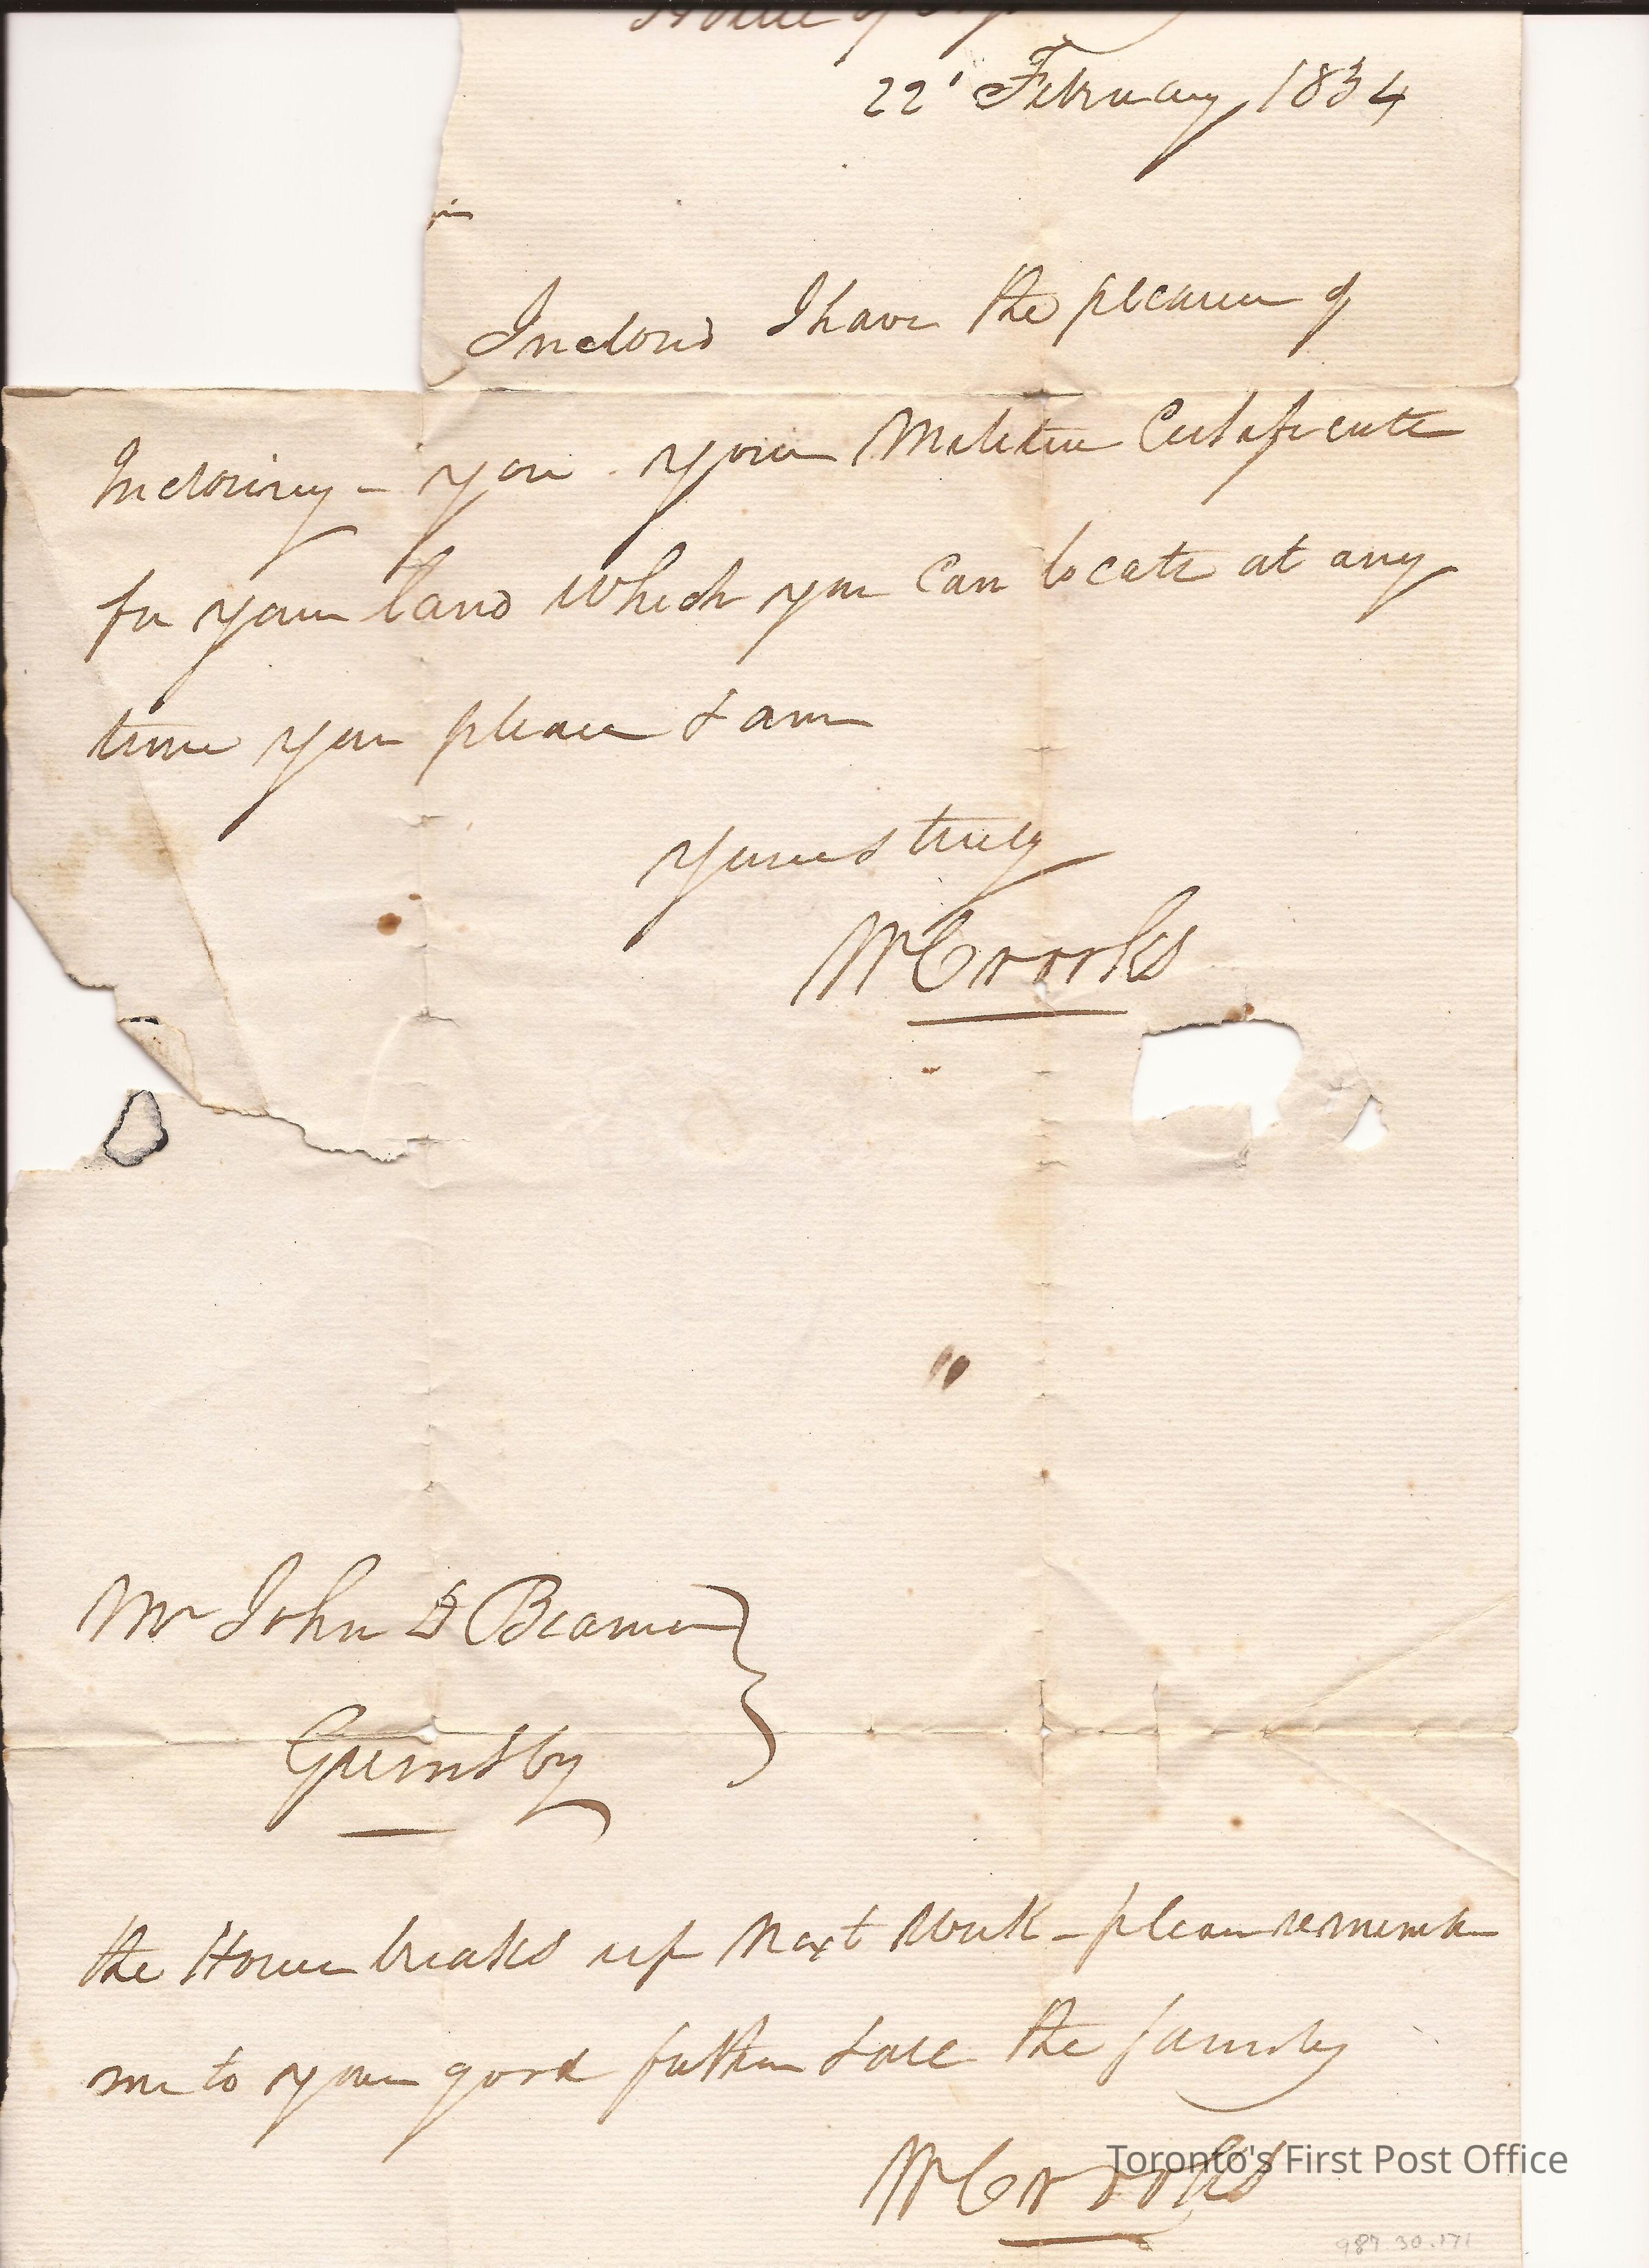 House of
22' February 1834
Inclosed I have the pleasure of
Inclosing - you your Militia Certificate
for your land which you can locate at any
time you please I am
Yours truly
Wm Crooks
Mr John D Beamer
Grimsby
the House breaks up next Week - please remember
me to your good father & all the family
Wm Crooks
Toronto's First Post Office
987.30.171